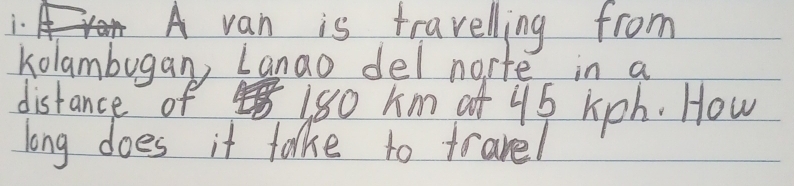 i. A van is travelling from
Kolambugan, Lanao del norte in a
distance of 180 km at 45 kph. How
long does it take to travel